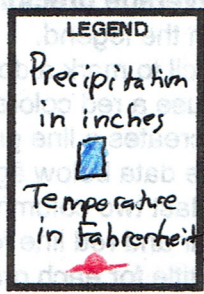 LEGEND
Precipitation
in inches
Temperature
in Fahrenheit